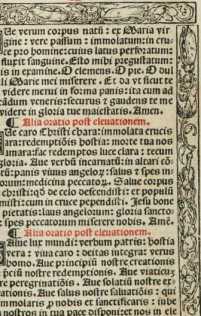 Ue verum corpus natū: ex Maria vir
gine: vere passum: immolatum: in cru
ce pro homine: cuius latus perforatum
fluxit sanguine. Esto mihi pregustatum:
is in examine. O clemens. O pie. O dul
li Marie mei miserere. Et da vt sicut te
videre merui in forma panis: ita cum ad
cādum veneris: securus & gaudens te me
videre in gloria tue maiestatis. Amen.
¶ Alia oratio post eleuationem.
Ue caro Christi chara: immolata crucis
ara: redemptiōis hostia: morte tua nos
amara: fac redemptos luce clara: tecum
gloria. Aue verbū incarnatū: in altari cō
tū: panis viuus angeloꝝ: salus & spes in
orum: medicina peccatoꝝ. Salue corpus
christi: qd̄ de celo descendisti: et populū
misti: cum in cruce pependisti. Jesu bone
pietatis: laus angelorum: gloria sancto
: spes peccatorum miserere nobis. Amē.
¶ Alia oratio post eleuationem.
Aue lux mundi: verbum patris: hostia
vera: viua caro: deitas integra: verus
homo. Aue principiū nostre creationis
preciū nostre redemptionis. Aue viaticū
re peregrinatiōis. Aue solatiū nostre ex
ationis. Aue salus nostre saluatiōis: qui
immolaris ꝓ nobis et sanctificaris: iube
nostros in tua pace disponi: et nos in ele